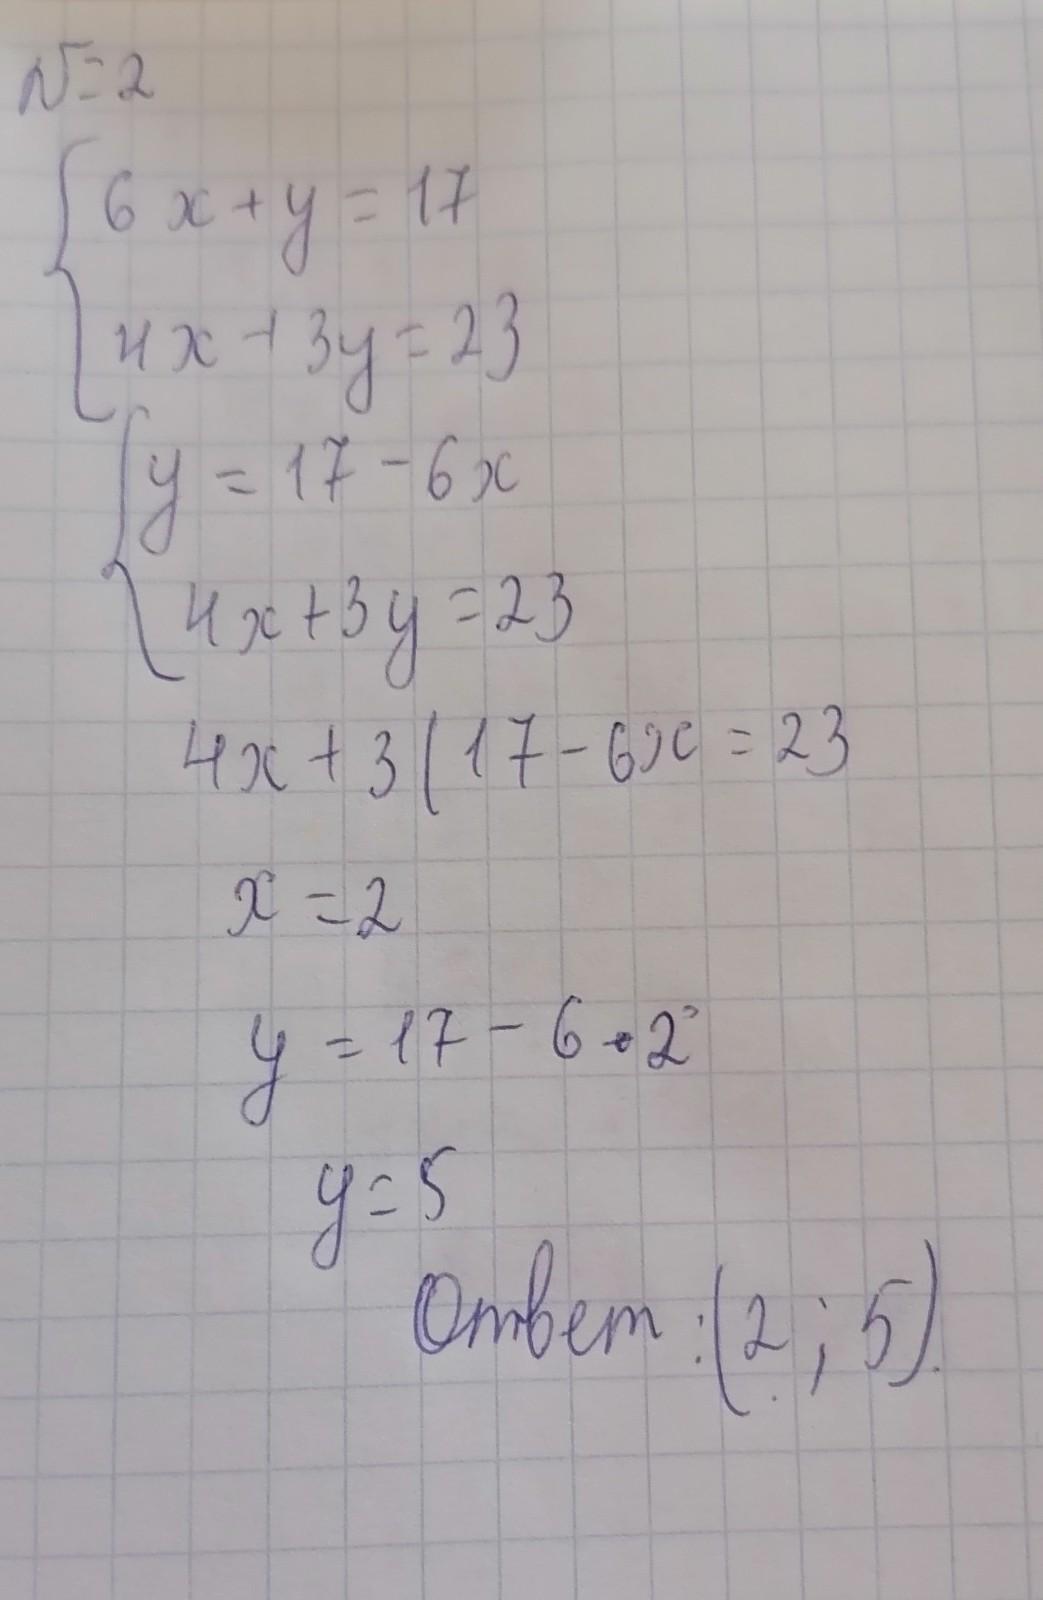 N=2
6x+y=17
4x+3y=23
y=17-6x
4x+3y=23
4x+3(17-6x=23
x=2
y=17-6•2
y=5
Ответ:(2;5).